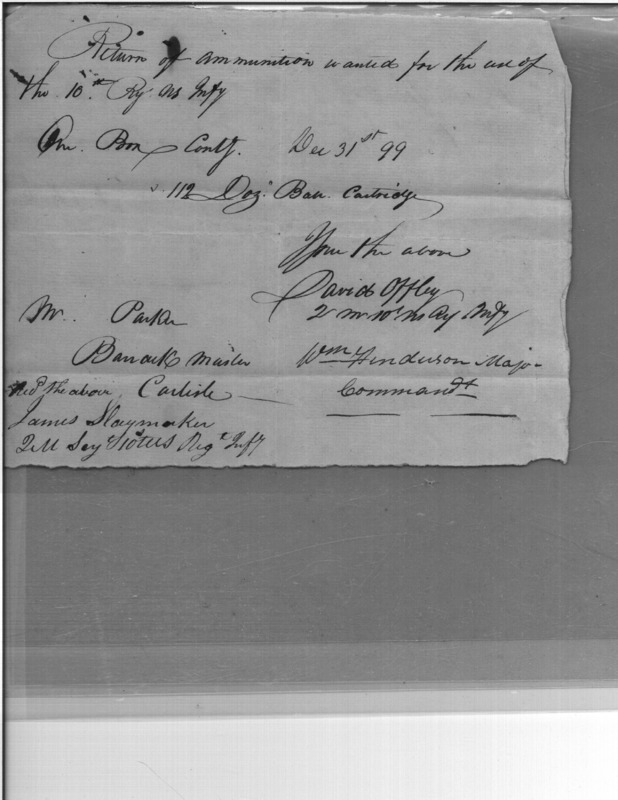 Return of ammunition wanted for the use of
the 10th Rg. US Infy
Dec 31st 99
112 Doz. Ball Cartridge
the above
David Offley
Q M 10t US Rg Infy
Mr. Parker
Barrack Master
Wm Henderson Major
Recd the above Carlisle
Commandt
James Slaymaker
Q M Sey 10t US Regt Infy